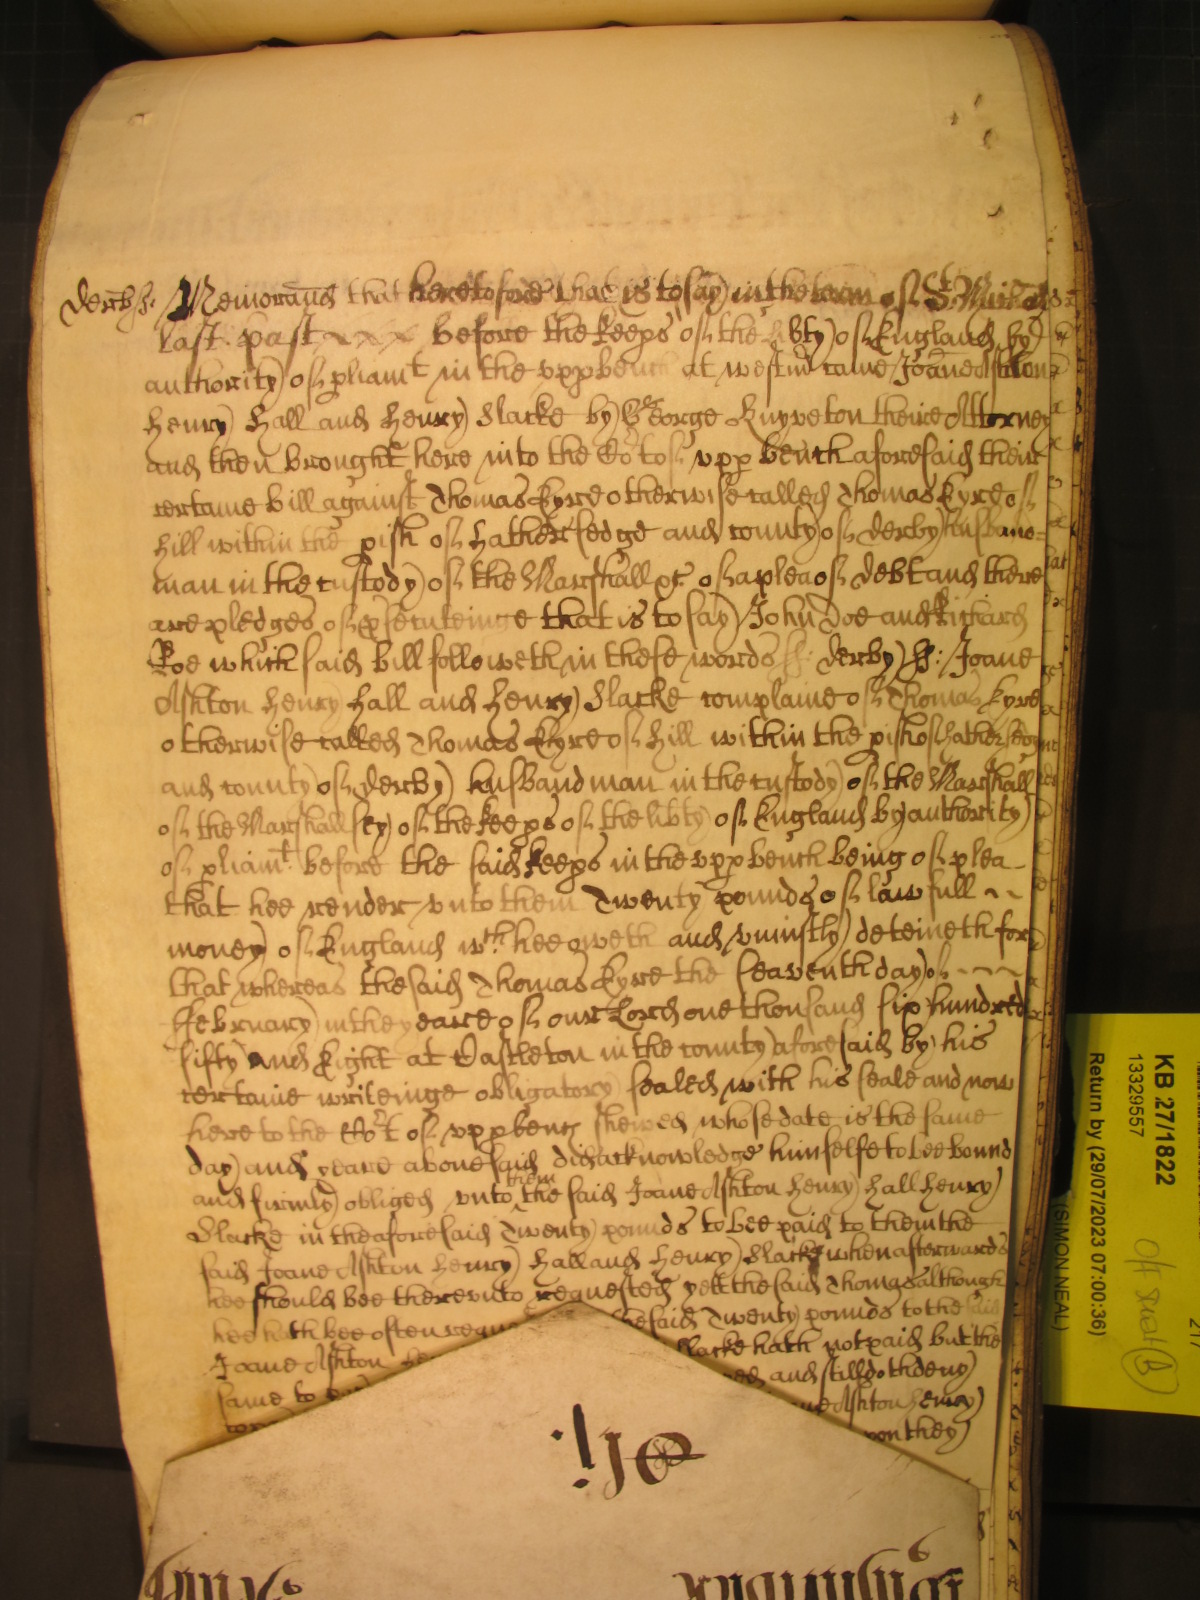 Derb ss: Memorand that heretofore that is to say in the terme of St. Mich
last past xxx before the keeps of the libty of England by
authority of pliamt in the upp bench at westm came Joane Ashton
Henry Hall and Henry Slacke by George Knyveton theire Attorney
and then brought here into the Cort of upp bench aforesaid their
certaine bill against Thomas Eyre otherwise called Thomas Eyre of
Hill within the pish of Hathersedge and county of Derby husband-
man in the custody of the Marshall &c of a plea of debt and there
are pledges of psecuteinge that is to say John Doe and Richard
Roe which said bill followeth in these words ss: Derby ss: Joane
Ashton Henry Hall and Henry Slacke complaine of Thomas Eyre
otherwise called Thomas Eyre of Hill within the pish of Hathersedge
and county of Derby husbandman in the custody of the Marshall
of the Marshallsey of the keeps of the libty of England by authority
of pliamt before the said keeps in the upp bench being of plea
that hee render unto them Twenty pounds of lawfull
money of England wch. hee oweth and uniustly deteineth for
that whereas the said Thomas Eyre the seaventh day of
ffebruary in the yeare of our Lord one thousand six hundred
fifty and Eight at Castleton in the county aforesaid by his
certaine writeinge obligatory sealed with his seale and now
here to the Cort of upp bench shewed whose date is the same
day and yeare abovesaid did acknowledge himselfe to bee bound
and firmly obliged unto them the said Joane Ashton Henry Hall Henry
Slacke in the aforesaid Twenty pounds to bee paid to them the
said Joane Ashton Henry Hall and Henry Slacke when afterwards
hee should bee thereunto requested yett the said Thomas although
hee hath bee often reque he said Twenty pounds to the said
Joane Ashton He Slacke hath not paid but the
same to and still doth deny
Ashton Henry
upon they
KB 27/1822
13329557
Return by (29/07/2023 07:00:36)
(SIMON NEAL)
217